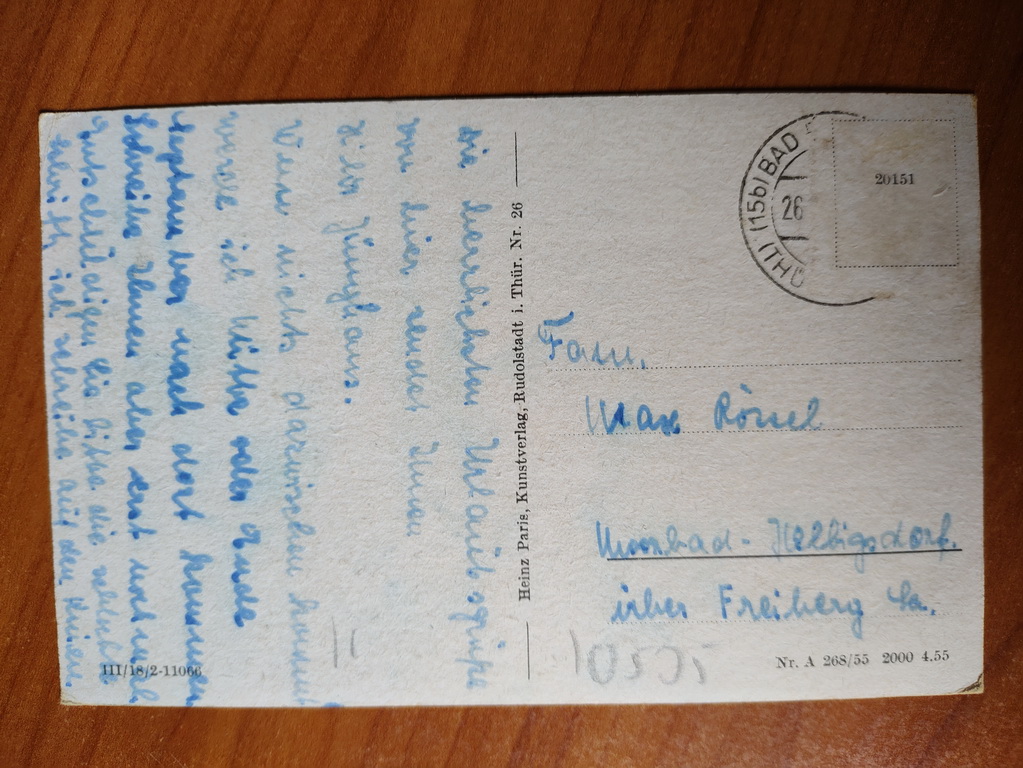 die herrlichsten Urlaubsgrüße
von hier sendet Ihnen
Wenn nichts dazwischen kommt
werde ich Mitte oder Ende
September mal nach dort kommen
Schreibe Ihnen aber erst noch mal
entschuldigen Sie bitte die schlechte
Schrift, ich schreibe auf den Knien.
III/18/2-11066
Heinz Paris, Kunstverlag, Rudolstadt i. Thür. Nr. 26
(15b) BAD
26
20151
Fam.
Max Rössel
Moorbad-Helbigsdorf.
über Freiberg Sa.
II
Nr. A 268/55 2000 4.55